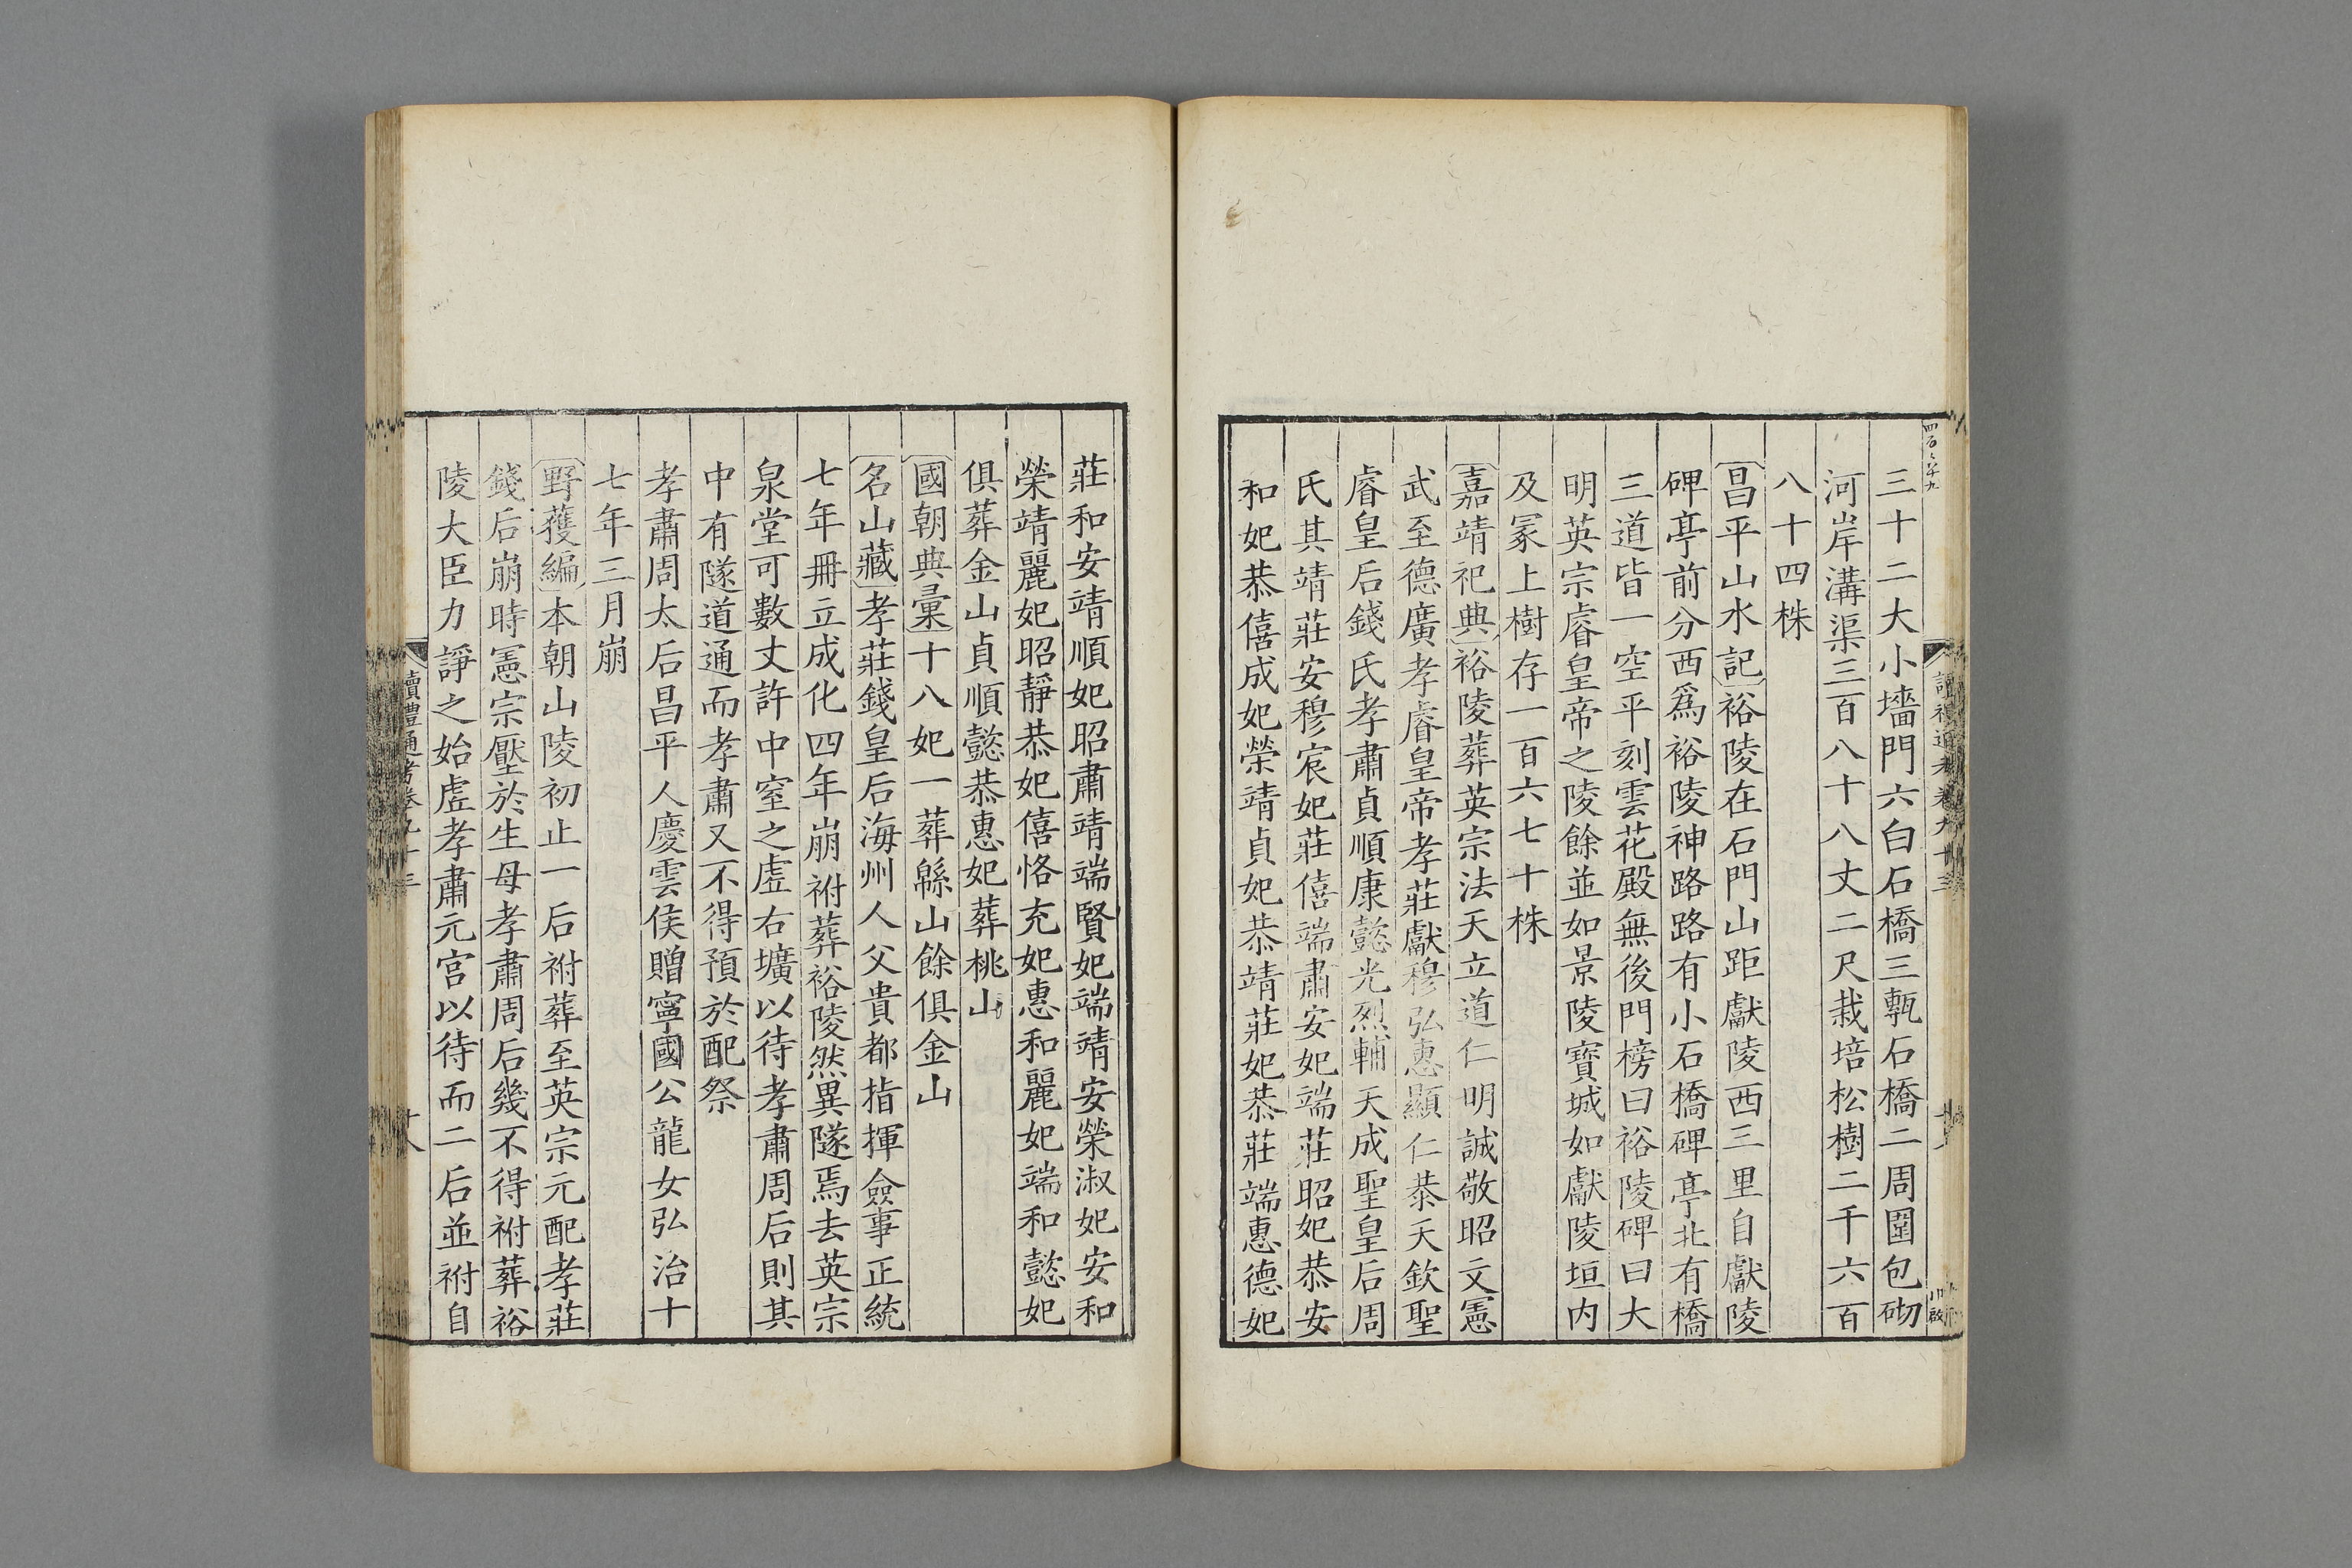 三十二大小墻門六白石橋三甎石橋二周圍包砌
河岸溝渠三百八十八丈二尺栽培松樹二千六百
八十四株
昌平山水記裕陵在石門山距獻陵西三里自獻陵
碑亭前分西爲裕陵神路路有小石橋碑亭北有橋
三道皆一空平刻雲花殿無後門榜曰裕陵碑曰大
明英宗睿皇帝之陵餘並如景陵寶城如獻陵垣内
及冢上樹存一百六七十株
嘉靖祀典裕陵葬英宗法天立道仁明誠敬昭文憲
武至德廣孝睿皇帝孝莊獻穆弘惠顯仁恭天欽聖
睿皇后錢氏孝肅貞順康懿光烈輔天成聖皇后周
氏其靖莊安穆宸妃莊僖端肅安妃端莊昭妃恭安
和妃恭僖成妃榮靖貞妃恭靖莊妃恭莊端惠德妃
莊和安靖順妃昭肅靖端賢妃端靖安榮淑妃安和
榮靖麗妃昭靜恭妃僖恪充妃惠和麗妃端和懿妃
俱葬金山貞順懿恭惠妃葬桃山
國朝典彙十八妃一葬緜山餘俱金山
名山藏孝莊錢皇后海州人父貴都指揮僉事正統
七年冊立成化四年崩祔葬裕陵然異隧焉去英宗
泉堂可數丈許中窒之虛右壙以待孝肅周后則其
中有隧道通而孝肅又不得預於配祭
孝肅周太后昌平人慶雲侯贈寧國公龍女弘治十
七年三月崩
野獲編本朝山陵初止一后祔葬至英宗元配孝莊
錢后崩時憲宗壓於生母孝肅周后幾不得祔葬裕
陵大臣力諍之始虛孝肅元宮以待而二后並祔自
讀禮通考卷九十三
十八